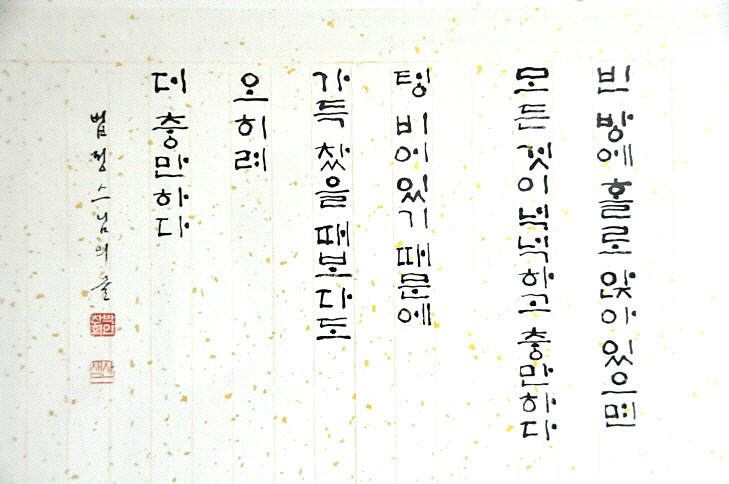 빈 방에 홀로 앉아 있으면
모든 것이 넉넉하고 충만하다
텅 비어 있기 때문에
가득 찼을 때보다도
오히려
더 충만하다
법정스님의 글